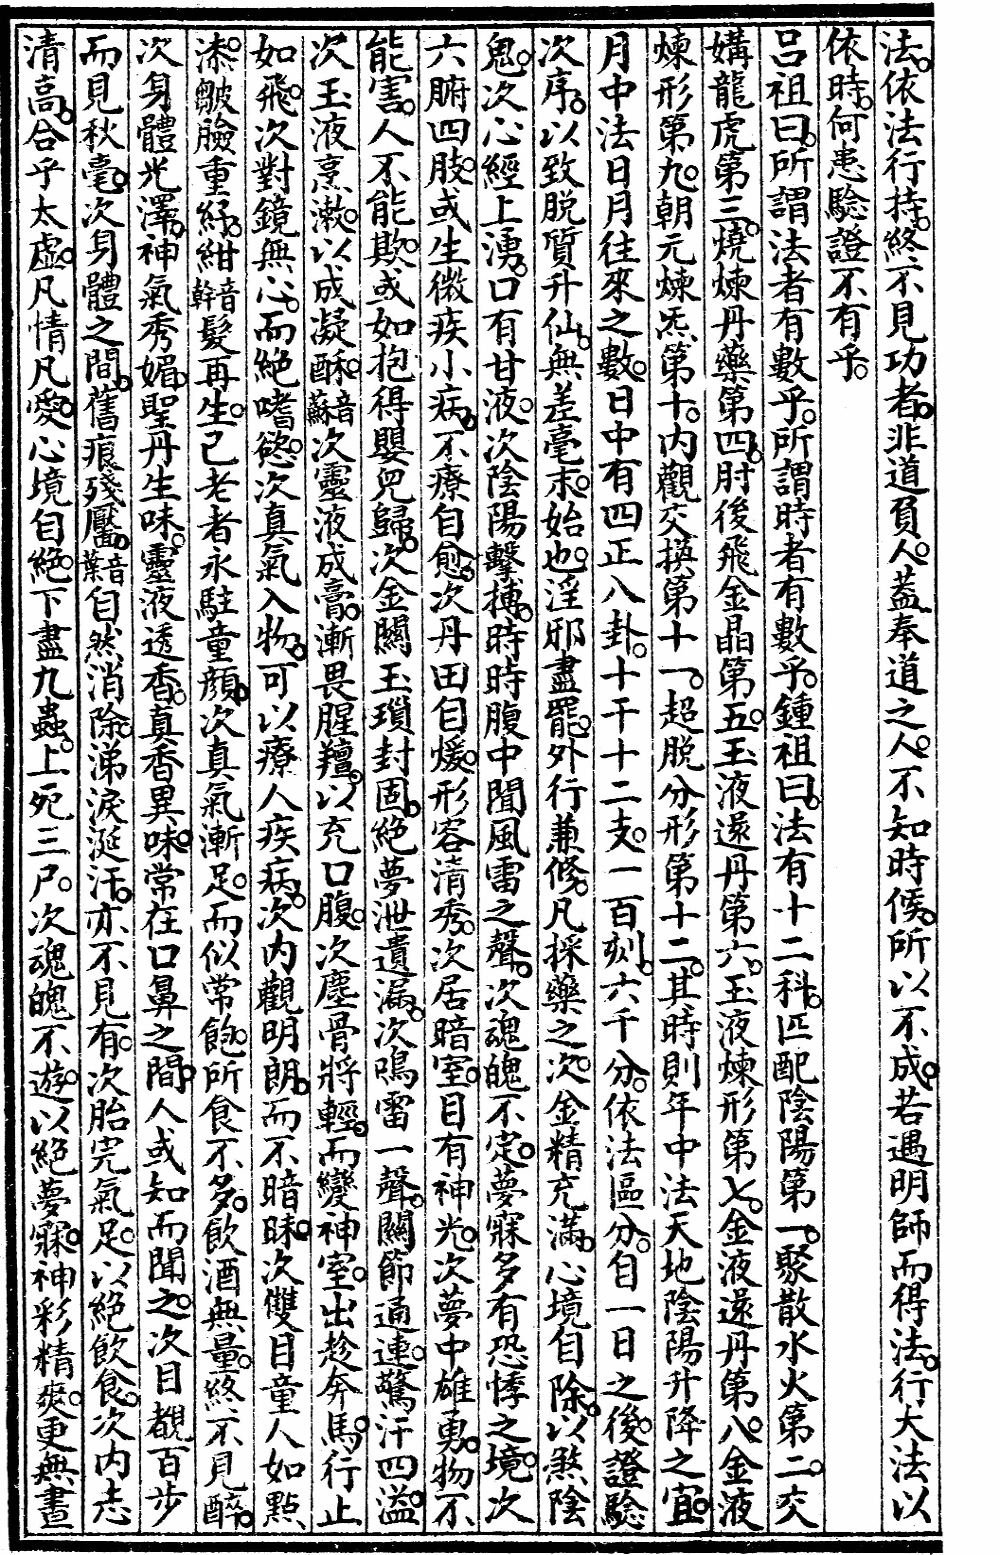 法。依法行持。終不見功者。非道負人。蓋奉道之人。不知時候。所以不成。若遇明師而得法。行大法以
依時。何患驗證不有乎。
呂祖曰。所謂法者有數乎。所謂時者有數乎。鍾祖曰。法有十二科。匹配陰陽第一。聚散水火第二。交
媾龍虎第三。燒煉丹藥第四。肘後飛金晶第五。玉液還丹第六。玉液煉形第七。金液還丹第八。金液
煉形第九。朝元煉炁第十。內觀交換第十一。超脫分形第十二。其時則年中法天地陰陽升降之宜。
月中法日月往來之數。日中有四正八卦。十干十二支。一百刻。六千分。依法區分。自一日之後。證驗
次序。以致脫質升仙。無差毫末。始也。淫邪盡罷。外行兼修。凡採藥之次。金精充滿。心境自除。以煞陰
鬼。次心經上湧。口有甘液。次陰陽擊搏。時時腹中聞風雷之聲。次魂魄不定。夢寐多有恐悸之境。次
六腑四肢。或生微疾小病。不療自愈。次丹田自煖。形容清秀。次居暗室。目有神光。次夢中雄勇。物不
能害。人不能欺。或如抱得嬰兒歸。次金關玉瑣封固。絕夢泄遺漏。次鳴雷一聲。關節通連。驚汗四溢。
次玉液烹漱。以成凝酥音蘇次靈液成膏。漸畏腥羶。以充口腹。次塵骨將輕。而變神室。出趁奔馬。行止
如飛。次對鏡無心。而絕嗜慾。次真氣入物。可以療人疾病。次內觀明朗。而不暗昧。次雙目童人如點
漆。皺臉重紓。紺音幹髮再生。已老者永駐童顏。次真氣漸足。而似常飽。所食不多。飲酒無量。終不見醉。
次身體光澤。神氣秀媚。聖丹生味。靈液透香。真香異味。常在口鼻之間。人或知而聞之。次目覩百步
而見秋毫。次身體之間。舊痕殘靨。音葉自然消除。涕淚涎汗。亦不見有。次胎完氣足。以絕飲食。次內志
清高。合乎太虛。凡情凡愛。心境自絕。下盡九蟲。上死三尸。次魂魄不遊。以絕夢寐。神彩精爽。更無晝